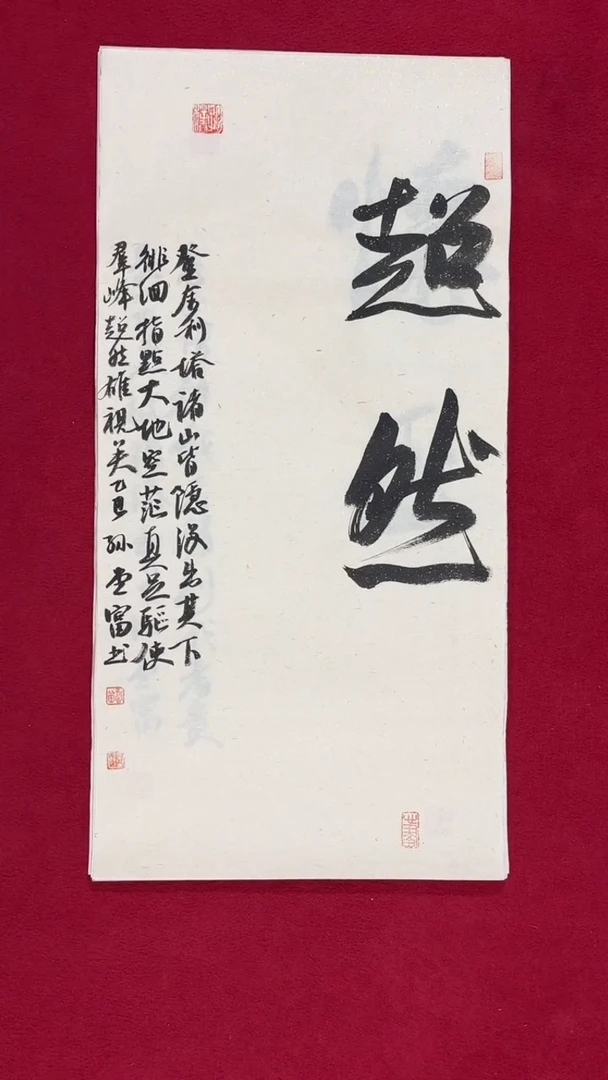 超然
登舍利塔诸山皆隐没出其下
徘徊指點大地空茫真足驅使
羣峰超然雄视矣乙巳孙 富书